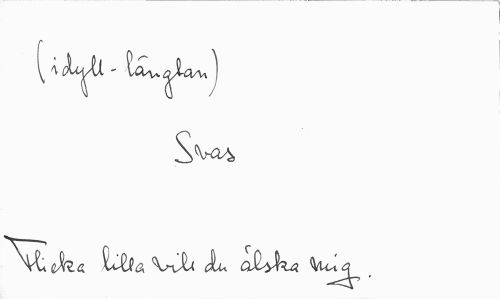 (idyll-längtan)
Svas
Flicka lilla vill du älska mig.